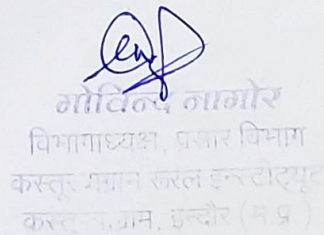 गोविन्द नागोर
विभागाध्यक्ष, प्रसार विभाग
कस्तूरबाग्राम रूरल इन्स्टीट्यूट
कस्तूरबाग्राम, इन्दौर (म.प्र.)